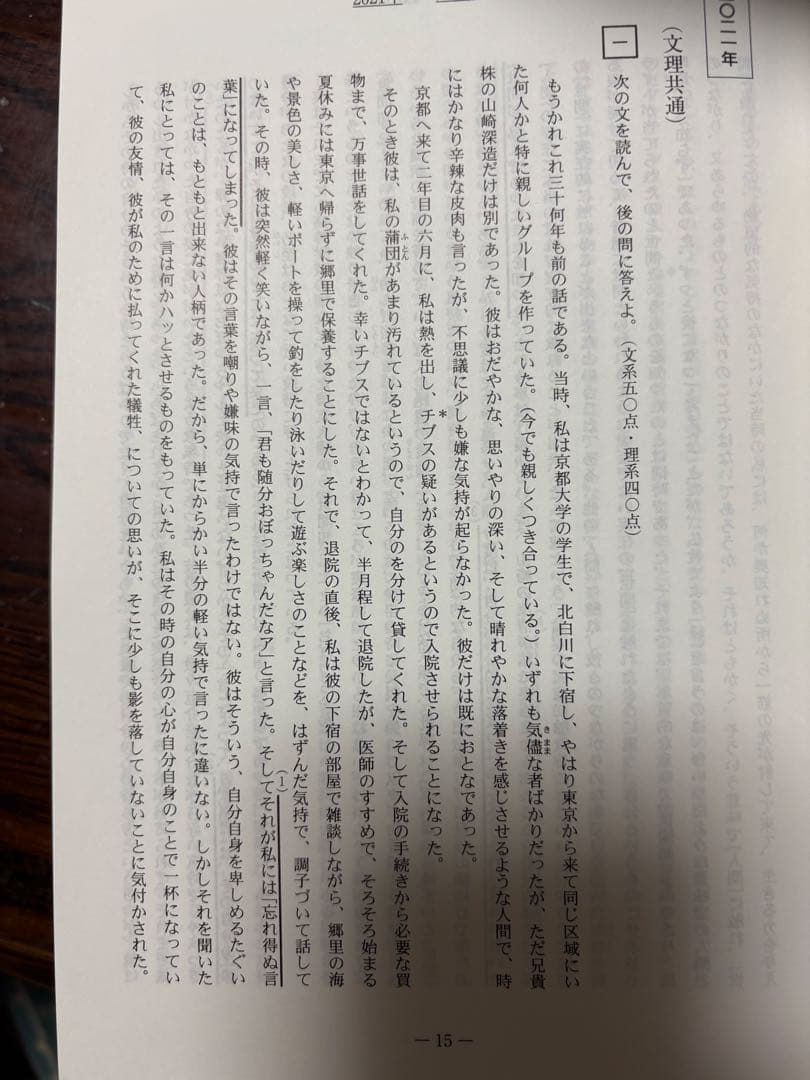 二〇二一年
（文理共通）
一
次の文を読んで、後の問に答えよ。（文系五〇点・理系四〇点）
もうかれこれ三十何年も前の話である。当時、私は京都大学の学生で、北白川に下宿し、やはり東京から来て同じ区域にい
た何人かと特に親しいグループを作っていた。（今でも親しくつき合っている。）いずれも気儘な者ばかりだったが、ただ兄貴
きまま
株の山崎深造だけは別であった。彼はおだやかな、思いやりの深い、そして晴れやかな落着きを感じさせるような人間で、時
にはかなり辛辣な皮肉も言ったが、不思議に少しも嫌な気持が起らなかった。彼だけは既におとなであった。
京都へ来て二年目の六月に、私は熱を出し、チブス*の疑いがあるというので入院させられることになった。
そのとき彼は、私の蒲団があまり汚れているというので、自分のを分けて貸してくれた。そして入院の手続きから必要な買
ふとん
物まで、万事世話をしてくれた。幸いチブスではないとわかって、半月程して退院したが、医師のすすめで、そろそろ始まる
夏休みには東京へ帰らずに郷里で保養することにした。それで、退院の直後、私は彼の下宿の部屋で雑談しながら、郷里の海
や景色の美しさ、軽いボートを操って釣をしたり泳いだりして遊ぶ楽しさのことなどを、はずんだ気持で、調子づいて話して
いた。その時、彼は突然軽く笑いながら、一言、「君も随分おぼっちゃんだなア」と言った。そしてそれが私には「忘れ得ぬ言
(1)
葉」になってしまった。彼はその言葉を嘲りや嫌味の気持で言ったわけではない。彼はそういう、自分自身を卑しめるたぐい
のことは、もともと出来ない人柄であった。だから、単にからかい半分の軽い気持で言ったに違いない。しかしそれを聞いた
私にとっては、その一言は何かハッとさせるものをもっていた。私はその時の自分の心が自分自身のことで一杯になってい
て、彼の友情、彼が私のために払ってくれた犠牲、についての思いが、そこに少しも影を落していないことに気付かされた。
— 15 —